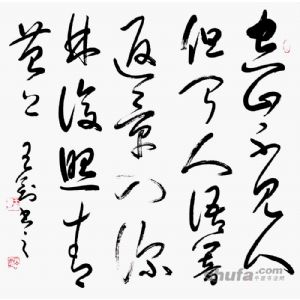 空山不見人
但闻人语響
返景入深
林復照青
苔上
hufa.com